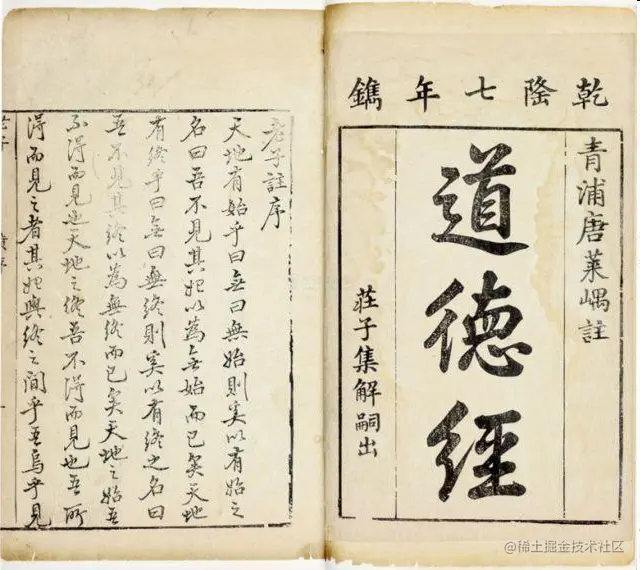 乾隆七年鐫
青浦唐萊嵎註
道徳經
荘子集解嗣出
老子註序
天地有始乎曰無曰無始則奚以有始之
名曰吾不見其始以為無始而已矣天地
有終乎曰無曰無終則奚以有終之名曰
吾不見其終以為無終而已矣天地之始吾
不得而見也天地之終吾不得而見也吾所
得而見之者其始與終之間乎吾烏乎見
老子
@稀土掘金技术社区